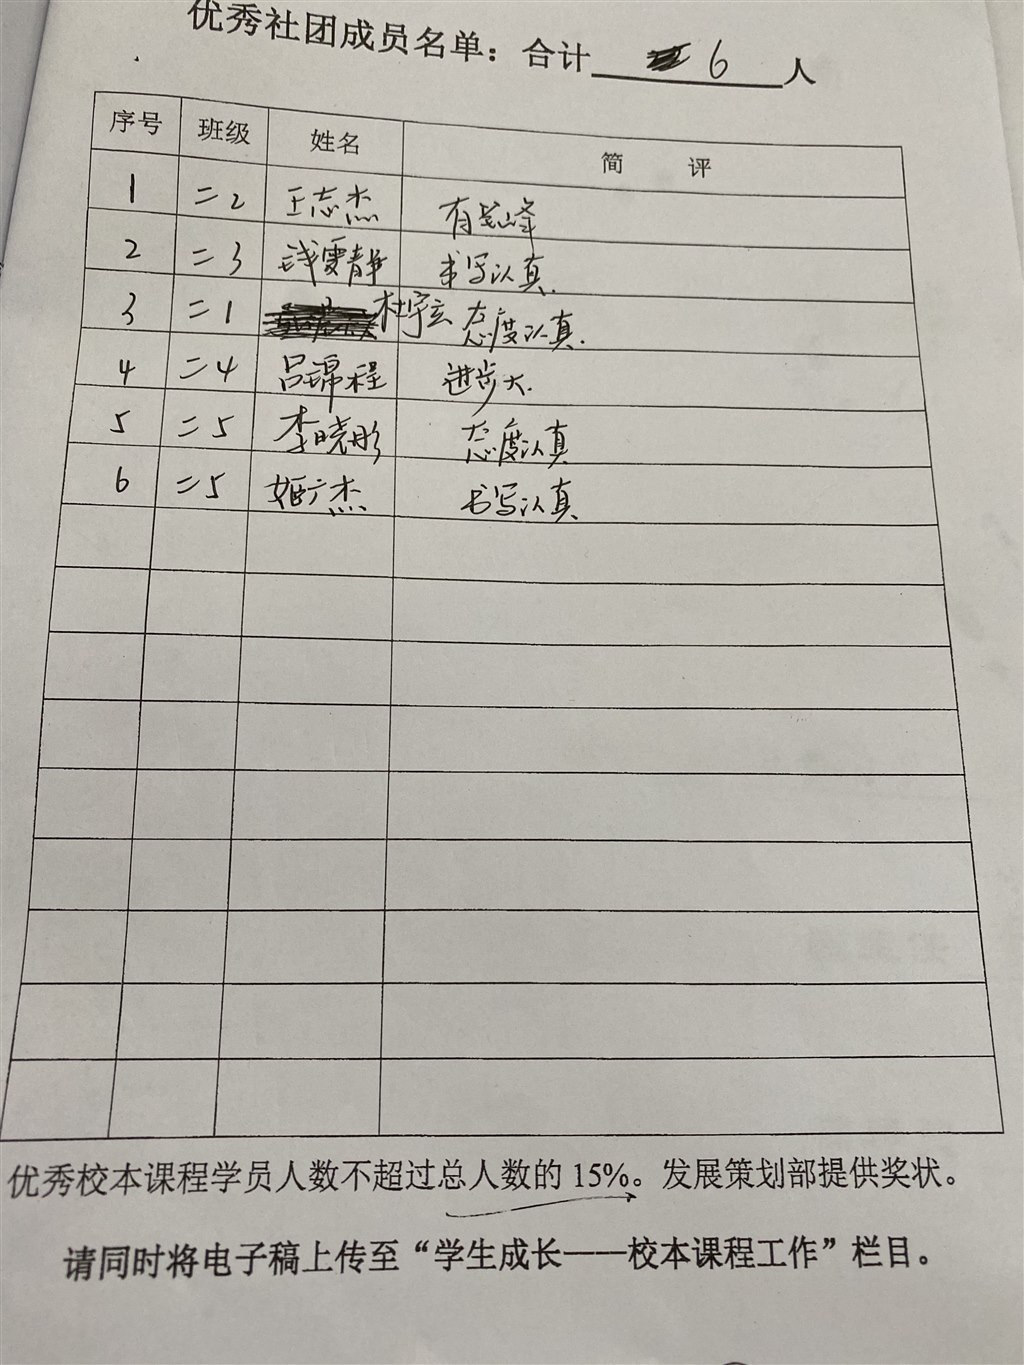 优秀社团成员名单：合计 6 人
序号 班级 姓名 简 评
1 二2 王志杰 有笔峰
2 二3 钱雯静 书写认真.
3 二1 杜宇玄 态度认真.
4 二4 吕锦程 进步大.
5 二5 李晓彤 态度认真
6 二5 姬广杰 书写认真
优秀校本课程学员人数不超过总人数的 15%。发展策划部提供奖状。
请同时将电子稿上传至“学生成长——校本课程工作”栏目。